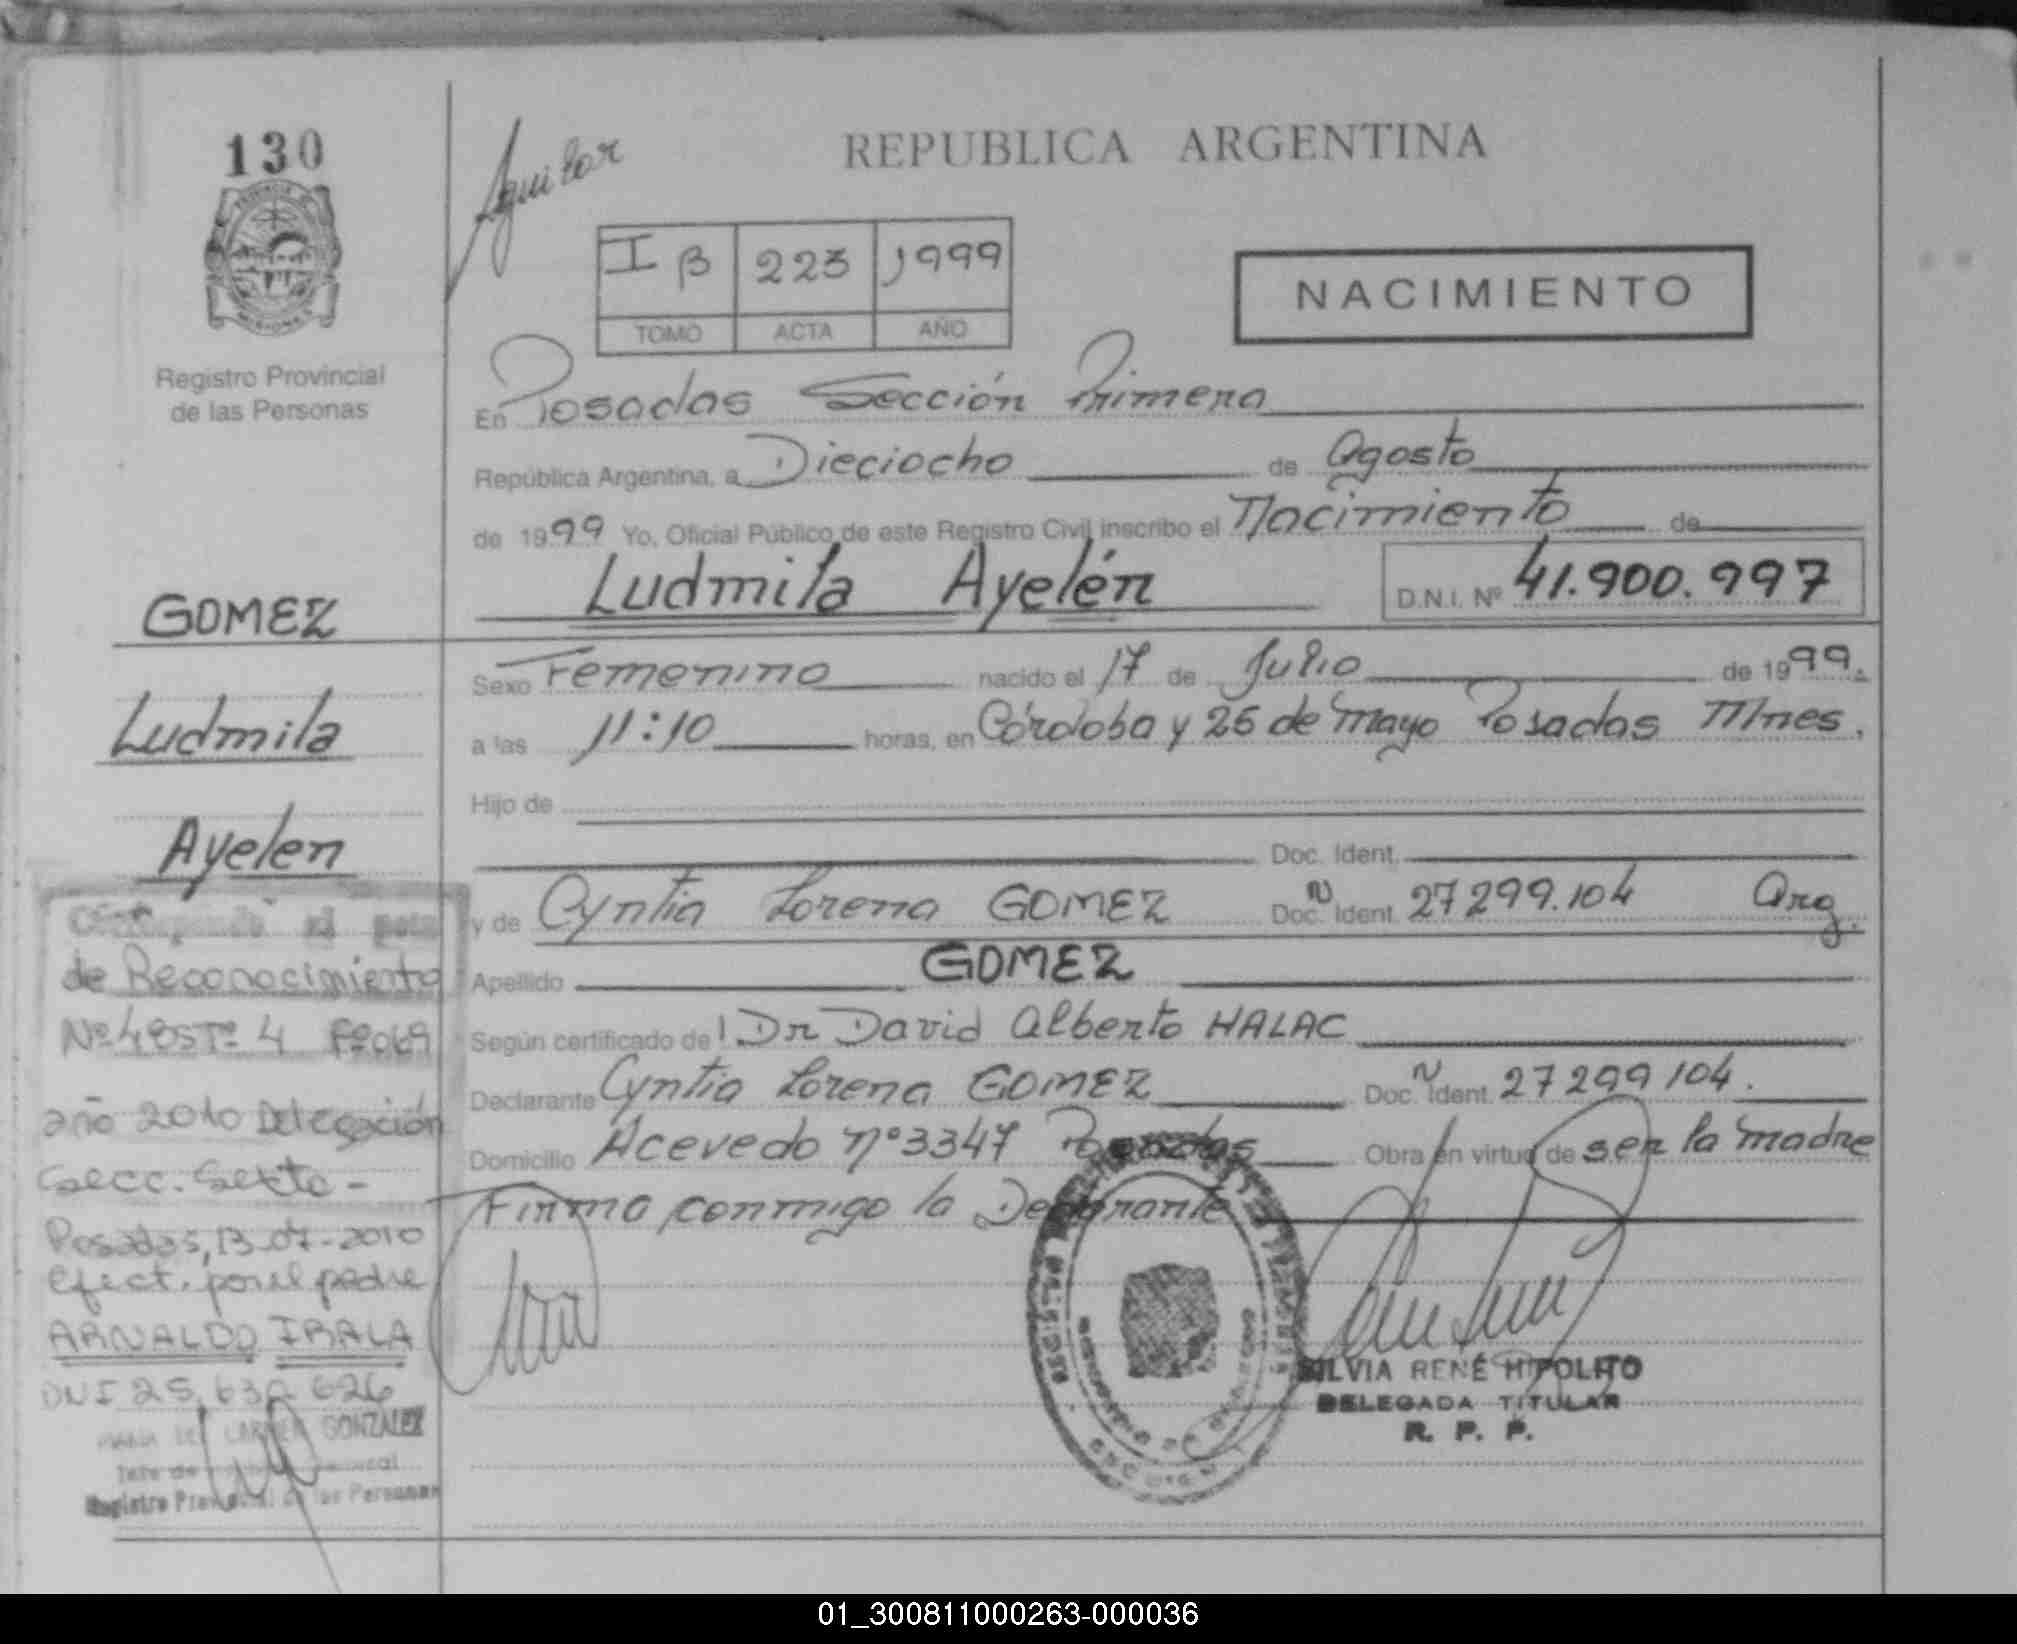 130
Registro Provincial
de las Personas
Aguilar
REPUBLICA ARGENTINA
I B 223 1999
TOMO ACTA AÑO
NACIMIENTO
En Posadas Sección Primera
República Argentina, a Dieciocho de Agosto
de 1999 Yo, Oficial Público de este Registro Civil inscribo el Nacimiento de
Ludmila Ayelén D.N.I. Nº 41.900.997
Sexo Femenino nacido el 17 de Julio de 1999.
a las 11:10 horas, en Córdoba y 25 de Mayo Posadas Mnes.
Hijo de
Doc. Ident.
y de Cyntia Lorena GOMEZ Doc. N Ident. 27299.104 Arg.
Apellido GOMEZ
Según certificado del Dr David Alberto HALAC
Declarante Cyntia Lorena GOMEZ Doc. N Ident. 27299104.
Domicilio Acevedo nº3347 Posadas Obra en virtud de ser la madre
Firma conmigo la Declarante
SILVIA RENÉ HIPOLITO
DELEGADA TITULAR
R. P. P.
GOMEZ
Ludmila
Ayelen
al acta
de Reconocimiento
Nº 485 Tº 4 Fº 069
año 2010 Delegación
Secc. Sexta -
Posadas, 13-07-2010
Efect. por el padre
ARNALDO IBALA
DNI 25.632.626
MARIA DEL CARMEN GONZALEZ
Jefe de
Registro Provincial de las Personas
01_300811000263-000036